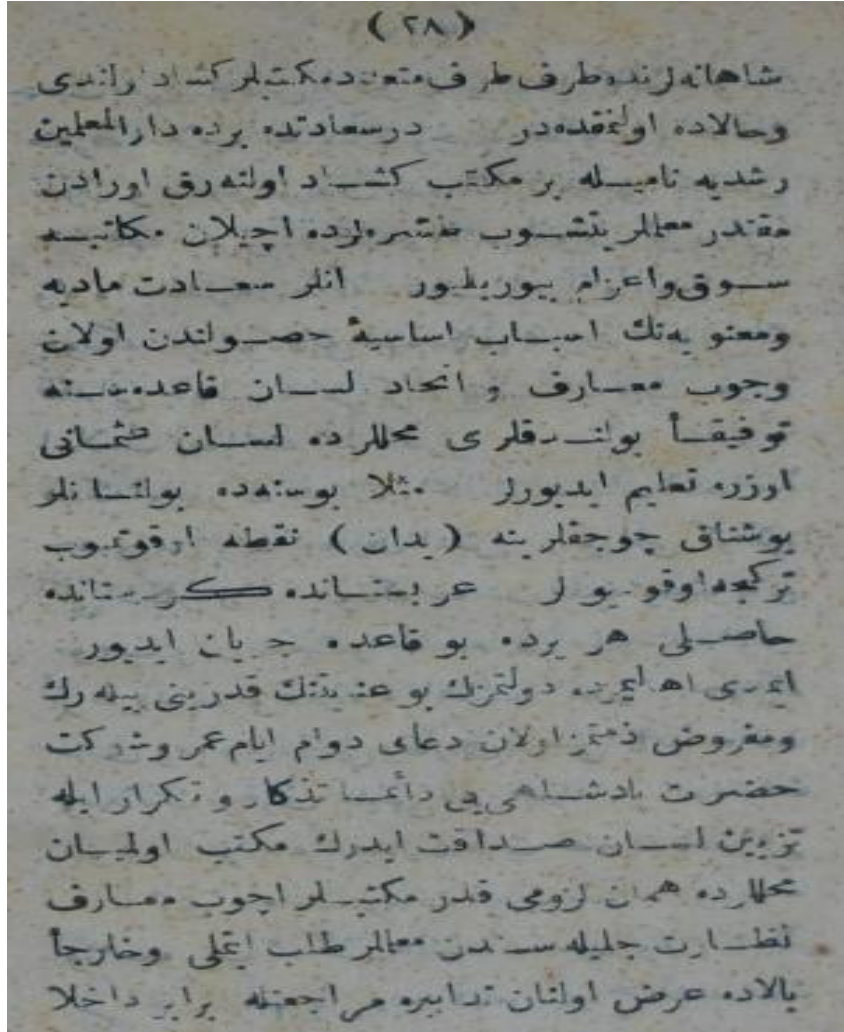 (٢٨)
شاهانه لرنده طرف طرف متعدد مكتبلر كشاد اولندی
وحالاده اولنمقده در درسعادتده برده دارالمعلمین
رشدیه نامیله بر مكتب كشاد اولنه رق اورادن
مقتدر معلملر یتشوب طشره لرده اچیلان مكاتبه
سوق واعزام بیوریلیور انلر سعادت مادیه
ومعنویه نك اسباب اساسیهٔ حصولندن اولان
وجوب معارف و اتحاد لسان قاعده سنه
توفیقاً بولندقلری محللرده لسان عثمانی
اوزره تعلیم ایدیورلر مثلا بوسنه ده بولنانلر
بوشناق چوجقلرینه (یدان) نقطه اوقوتمیوب
تركجه اوقودیورلر عربستانده كردستانده
حاصلی هر یرده بو قاعده جریان ایدیور
ایمدی اهالیمزده دولتمزك بو عنایتنك قدرینی بیله رك
ومفروض ذمتمز اولان دعای دوام ایام عمر وشوكت
حضرت پادشاهی یی دائما تذكار و تكرار ایله
تزیین لسان صداقت ایدرك مكتب اولمیان
محللرده همان لزومی قدر مكتبلر اچوب معارف
نظارت جلیله سندن معلملر طلب ایتملی وخارجاً
بالاده عرض اولنان تدابیره مراجعتله برابر داخلا